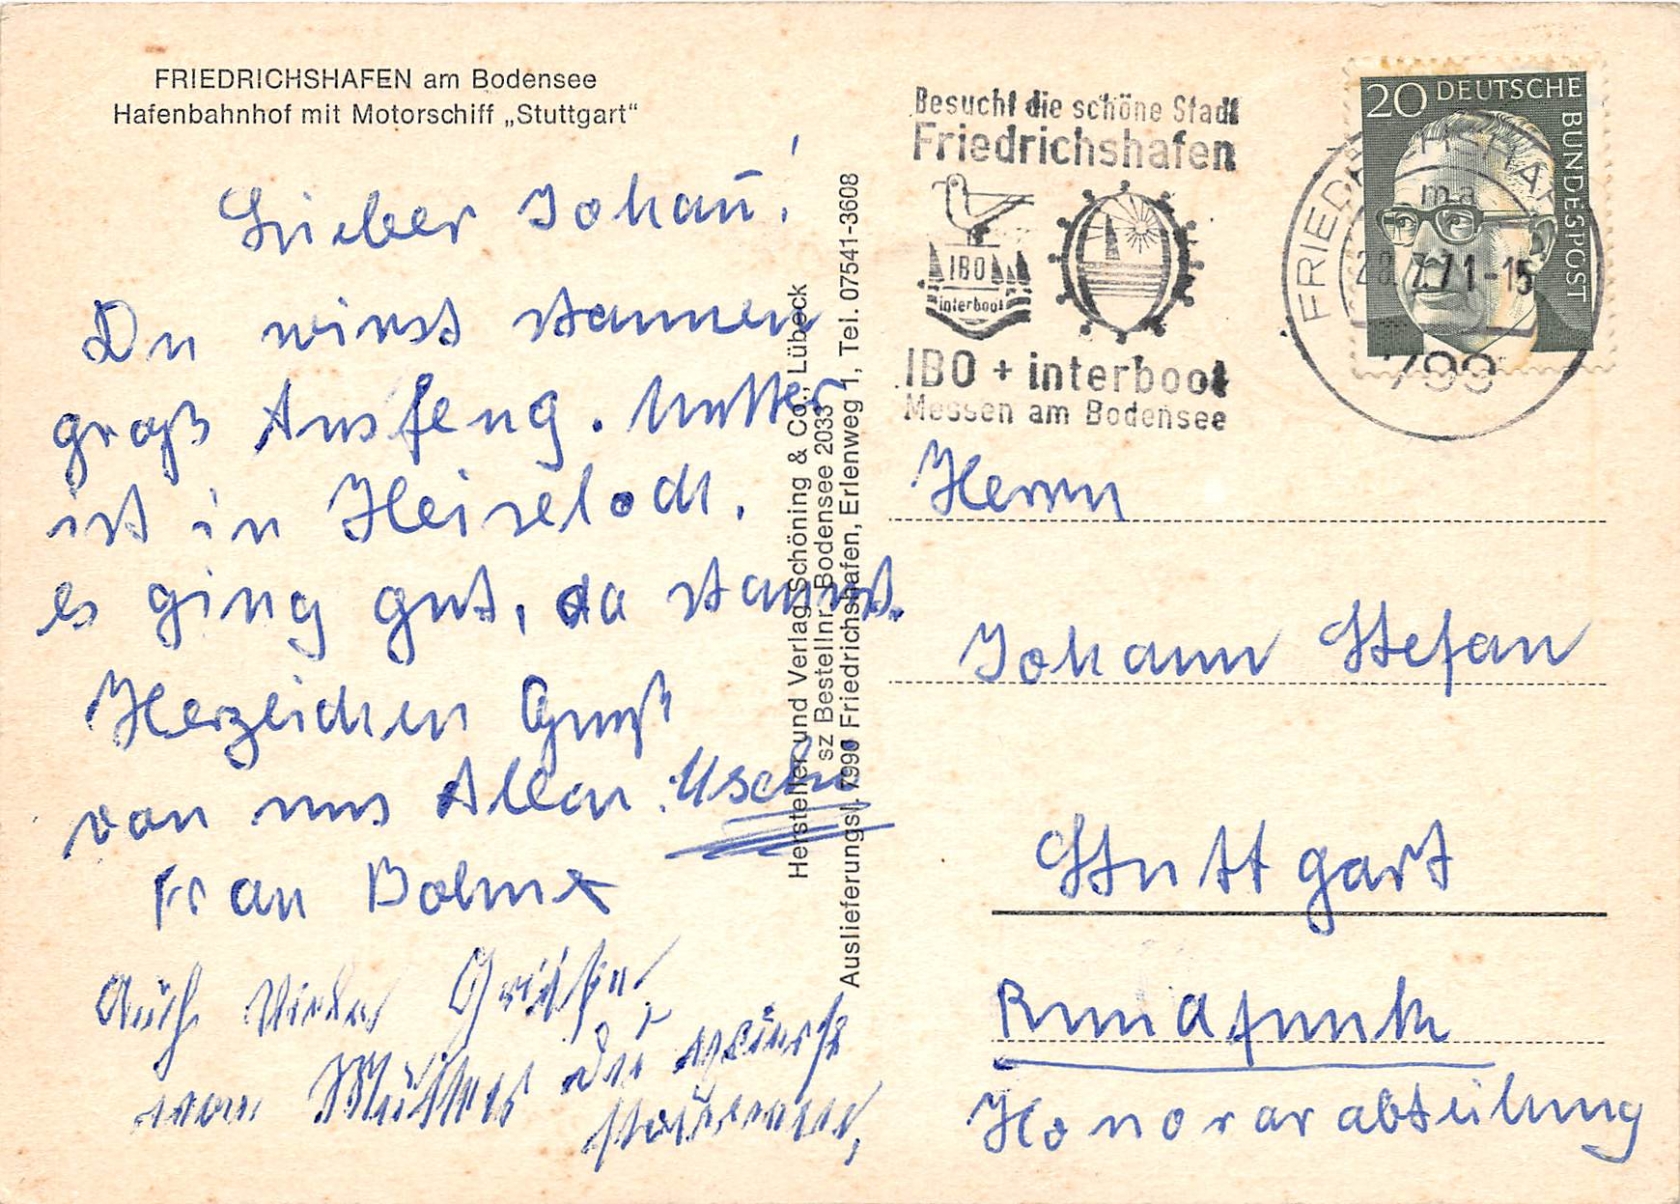 FRIEDRICHSHAFEN am Bodensee
Hafenbahnhof mit Motorschiff „Stuttgart“
Lieber Johan̅!
Du wirst staunen
groß Ausfeng. Mutter
ist in
es ging gut, da staunst.
Herzeichen Gruß
von uns Allen. Uschi
Frau
Auch viele Grüße
von Mutter Du wirst
staunen,
Hersteller und Verlag Schöning & Co., Lübeck
sz Bestellnr. Bodensee 2033
Auslieferungsl. 7990 Friedrichshafen, Erlenweg 1, Tel. 07541-3608
Besucht die schöne Stadt
Friedrichshafen
IBO
interboot
IBO + interboot
Messen am Bodensee
20 DEUTSCHE
BUNDESPOST
FRIEDRICHSHAFEN
ma
7.71-15
799
Herrn
Johann Stefan
Stuttgart
Rundfunk
Honorarabteilung